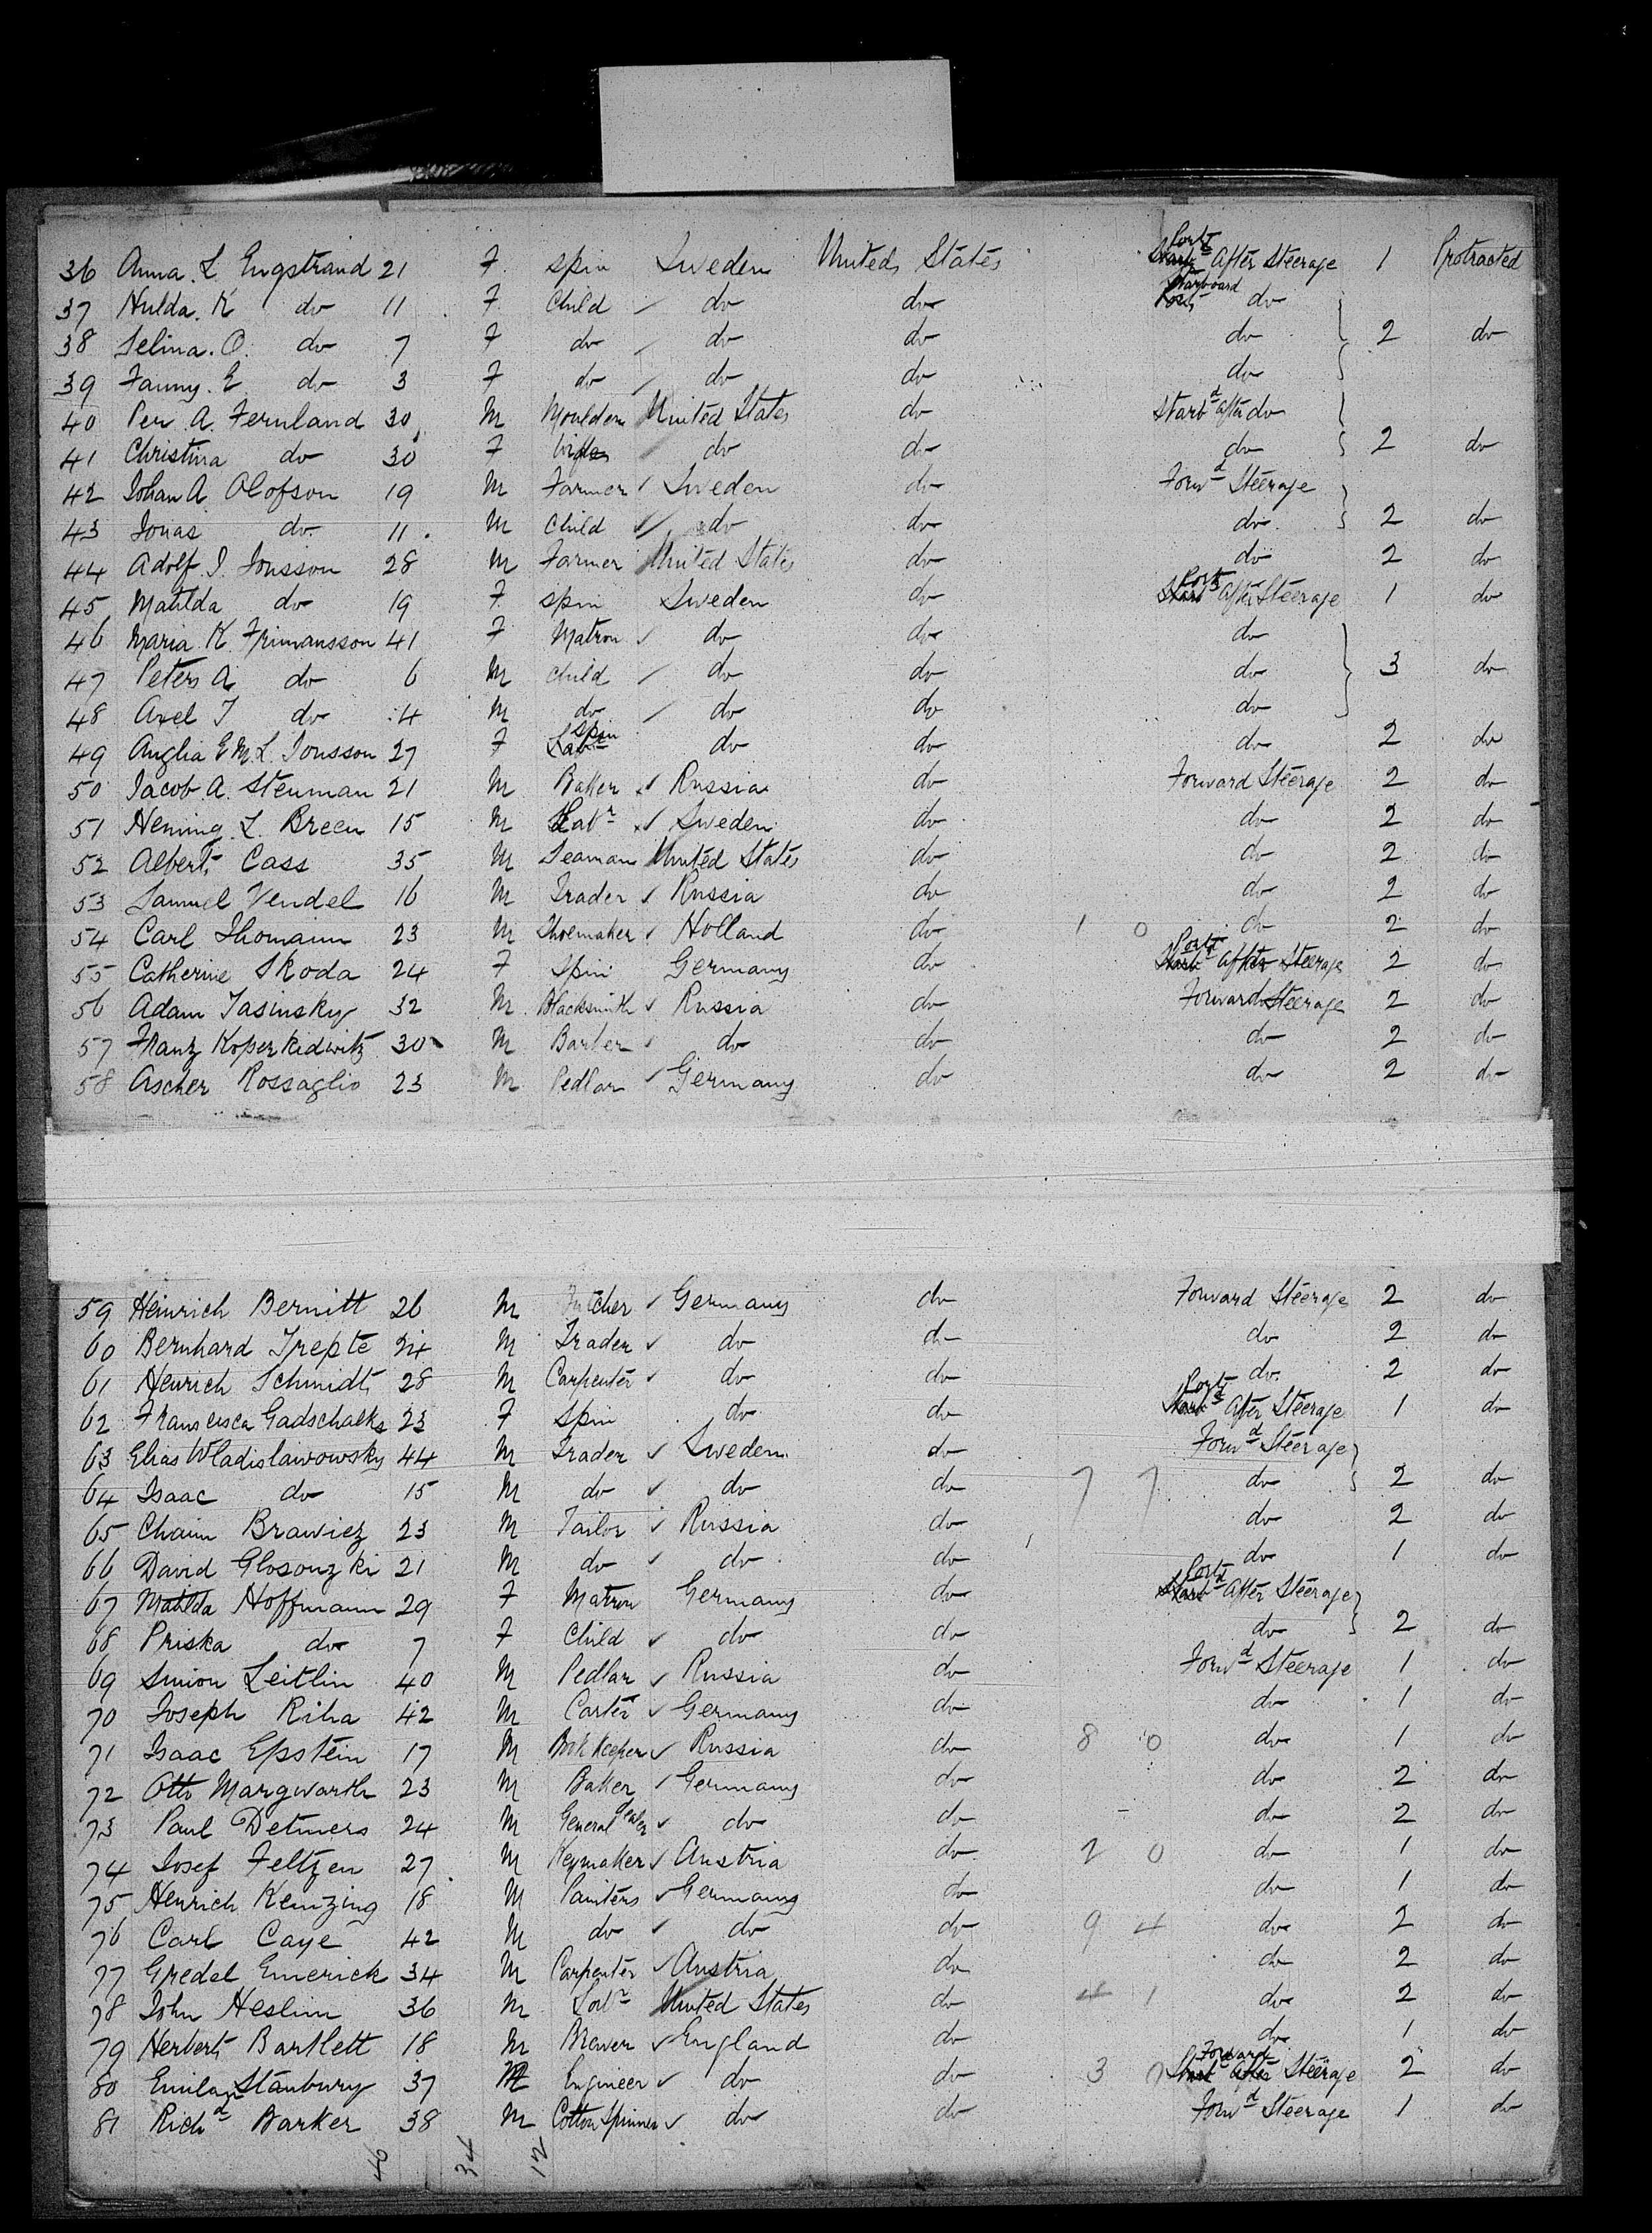 36 Anna. L Engstrand 21 F. spin Sweden United States Port Starb After Steerage 1 Protracted
37 Hulda. K do 11 F. Child do do Starboard Port do
38 Selina. O. do 7 F do do do do 2 do
39 Fanny. E do 3 F do do do do
40 Per A. Fernland 30 M Moulder United States do Starbd after do
41 Christina do 30 F Wife do do do 2 do
42 Johan A. Olofson 19 M Farmer Sweden do Forwd Steerage
43 Jonas do. 11. M Child do do do 2 do
44 Adolf. J. Jonsson 28 M Farmer United States do do 2 do
45 Matilda do 19 F. spin Sweden do Port Starbd After Steerage 1 do
46 Maria K. Frimansson 41 F Matron do do do
47 Peter A do 6 M Child do do do 3 do
48 Axel J do 4 M do do do do
49 Anglia E M. L. Jonsson 27 F Labr spin do do do 2 do
50 Jacob. A. Stenman 21 M Baker Russia do Forward Steerage 2 do
51 Hening. L. Breen 15 M Labr Sweden do do 2 do
52 Albert Cass 35 M Seaman United States do do 2 do
53 Samuel Vendel 16 M Trader Russia do do 2 do
54 Carl Thomann 23 M Shoemaker Holland do 1 0 do 2 do
55 Catherine Skoda 24 F Spin Germany do Port Starbd After Steerage 2 do
56 Adam Jasinsky 32 M Blacksmith Russia do Forward Steerage 2 do
57 Franz Koperkidwitz 30 M Barber do do do 2 do
58 Ascher Rossaglio 23 M Pedlar Germany do do 2 do
59 Heinrich Bernitt 26 M Germany do Forward Steerage 2 do
60 Bernhard Trepte 24 M Trader do do do 2 do
61 Henrich Schmidt 28 M Carpenter do do do. 2 do
62 Francisca Gadschalks 23 F Spin do do Port Starbd After Steerage 1 do
63 Elias Wladislawowsky 44 M Trader Sweden do Forwd Steerage
64 Isaac do 15 M do do do 7 7 do 2 do
65 Chaim Brawicz 23 M Tailor Russia do do 2 do
66 David Glosouzki 21 M do do do do 1 do
67 Matilda Hoffmann 29 F Matron Germany do Port Starbd After Steerage
68 Priska do 7 F Child do do do 2 do
69 Simon Leitlin 40 M Pedlar Russia do Forwd Steerage 1 do
70 Joseph Riha 42 M Carter Germany do do 1 do
71 Isaac Epstein 17 M Bookkeeper Russia do 8 0 do 1 do
72 Otto Margwarth 23 M Baker Germany do do 2 do
73 Paul Detmers 24 M General dealer do do do 2 do
74 Josef Feltzen 27 M Keymaker Austria do 2 0 do 1 do
75 Henrich Kenzing 18 M Painters Germany do do 1 do
76 Carl Caye 42 M do do do 9 4 do 2 do
77 Gredel Emerick 34 M Carpenter Austria do do 2 do
78 John Heslin 36 M Labr United States do 4 1 do 2 do
79 Herbert Bartlett 18 M Brewer England do do 1 do
80 Emilan Stanbury 37 M Engineer do do 3 0 Forward Starbd After Steerage 2 do
81 Richd Barker 38 M Cotton Spinner do do Forwd Steerage 1 do
46 34 12